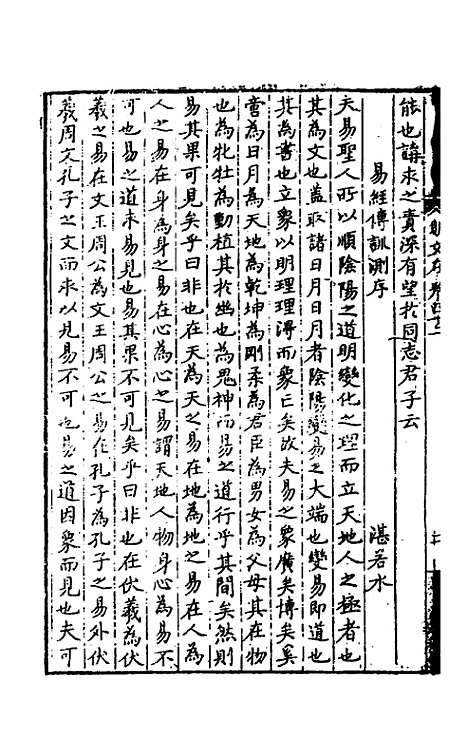 能也講求之責深有望於同志君子云
易經傳訓測序 湛若水
夫易聖人所以順陰陽之道明變化之理而立天地人之極者也
其為文也蓋取諸日月日月者陰陽變易之大端也變易即道也
其為書也立象以明理理得而象亡矣故夫易之象廣矣博矣奚
啻為日月為天地為乾坤為剛柔為君臣為男女為父母其在物
也為牝牡為動植其於幽也為鬼神而易之道行乎其間矣然則
易其果可見矣乎曰非也在天為天之易在地為地之易在人為
人之易在身為身之易在心為心之易謂天地人物身心為易不
可也易之道未易見也易其果不可見矣乎曰非也在伏羲為伏
羲之易在文王周公為文王周公之易在孔子為孔子之易外伏
羲周文孔子之文而求以見易不可也易之道因象而見也夫可